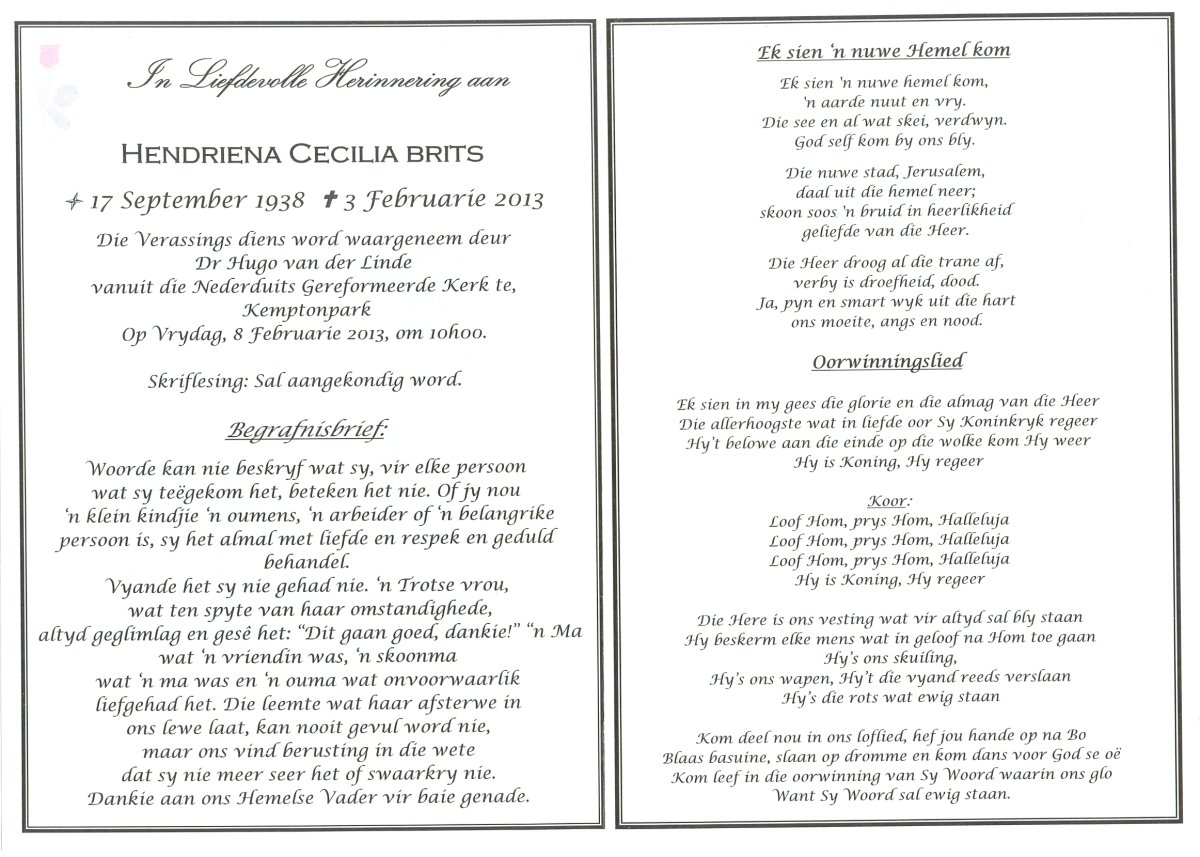 In Liefdevolle Herinnering aan
HENDRIENA CECILIA BRITS
17 September 1938 3 Februarie 2013
Die Verassings diens word waargeneem deur
Dr Hugo van der Linde
vanuit die Nederduits Gereformeerde Kerk te,
Kemptonpark
Op Vrydag, 8 Februarie 2013, om 10h00.
Skriflesing: Sal aangekondig word.
Begrafnisbrief:
Woorde kan nie beskryf wat sy, vir elke persoon
wat sy teëgekom het, beteken het nie. Of jy nou
‘n klein kindjie ‘n oumens, ‘n arbeider of ‘n belangrike
persoon is, sy het almal met liefde en respek en geduld
behandel.
Vyande het sy nie gehad nie. ‘n Trotse vrou,
wat ten spyte van haar omstandighede,
altyd geglimlag en gesê het: “Dit gaan goed, dankie!” “n Ma
wat ‘n vriendin was, ‘n skoonma
wat ‘n ma was en ‘n ouma wat onvoorwaarlik
liefgehad het. Die leemte wat haar afsterwe in
ons lewe laat, kan nooit gevul word nie,
maar ons vind berusting in die wete
dat sy nie meer seer het of swaarkry nie.
Dankie aan ons Hemelse Vader vir baie genade.
Ek sien ‘n nuwe Hemel kom
Ek sien 'n nuwe hemel kom,
'n aarde nuut en vry.
Die see en al wat skei, verdwyn.
God self kom by ons bly.
Die nuwe stad, Jerusalem,
daal uit die hemel neer;
skoon soos 'n bruid in heerlikheid
geliefde van die Heer.
Die Heer droog al die trane af,
verby is droefheid, dood.
Ja, pyn en smart wyk uit die hart
ons moeite, angs en nood.
Oorwinningslied
Ek sien in my gees die glorie en die almag van die Heer
Die allerhoogste wat in liefde oor Sy Koninkryk regeer
Hy’t belowe aan die einde op die wolke kom Hy weer
Hy is Koning, Hy regeer
Koor:
Loof Hom, prys Hom, Halleluja
Loof Hom, prys Hom, Halleluja
Loof Hom, prys Hom, Halleluja
Hy is Koning, Hy regeer
Die Here is ons vesting wat vir altyd sal bly staan
Hy beskerm elke mens wat in geloof na Hom toe gaan
Hy’s ons skuiling,
Hy’s ons wapen, Hy’t die vyand reeds verslaan
Hy’s die rots wat ewig staan
Kom deel nou in ons loflied, hef jou hande op na Bo
Blaas basuine, slaan op dromme en kom dans voor God se oë
Kom leef in die oorwinning van Sy Woord waarin ons glo
Want Sy Woord sal ewig staan.